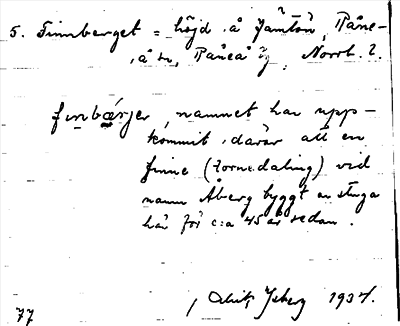 5. Finnberget = höjd å Jämtön, Råne-
å sn, Råneå tg, Norrb. l.
finbærjer, namnet har upp-
kommit därav att en
finne (tornedaling) vid
namn Åberg byggt en stuga
här för c:a 45 år sedan.
Isberg 1937.
77